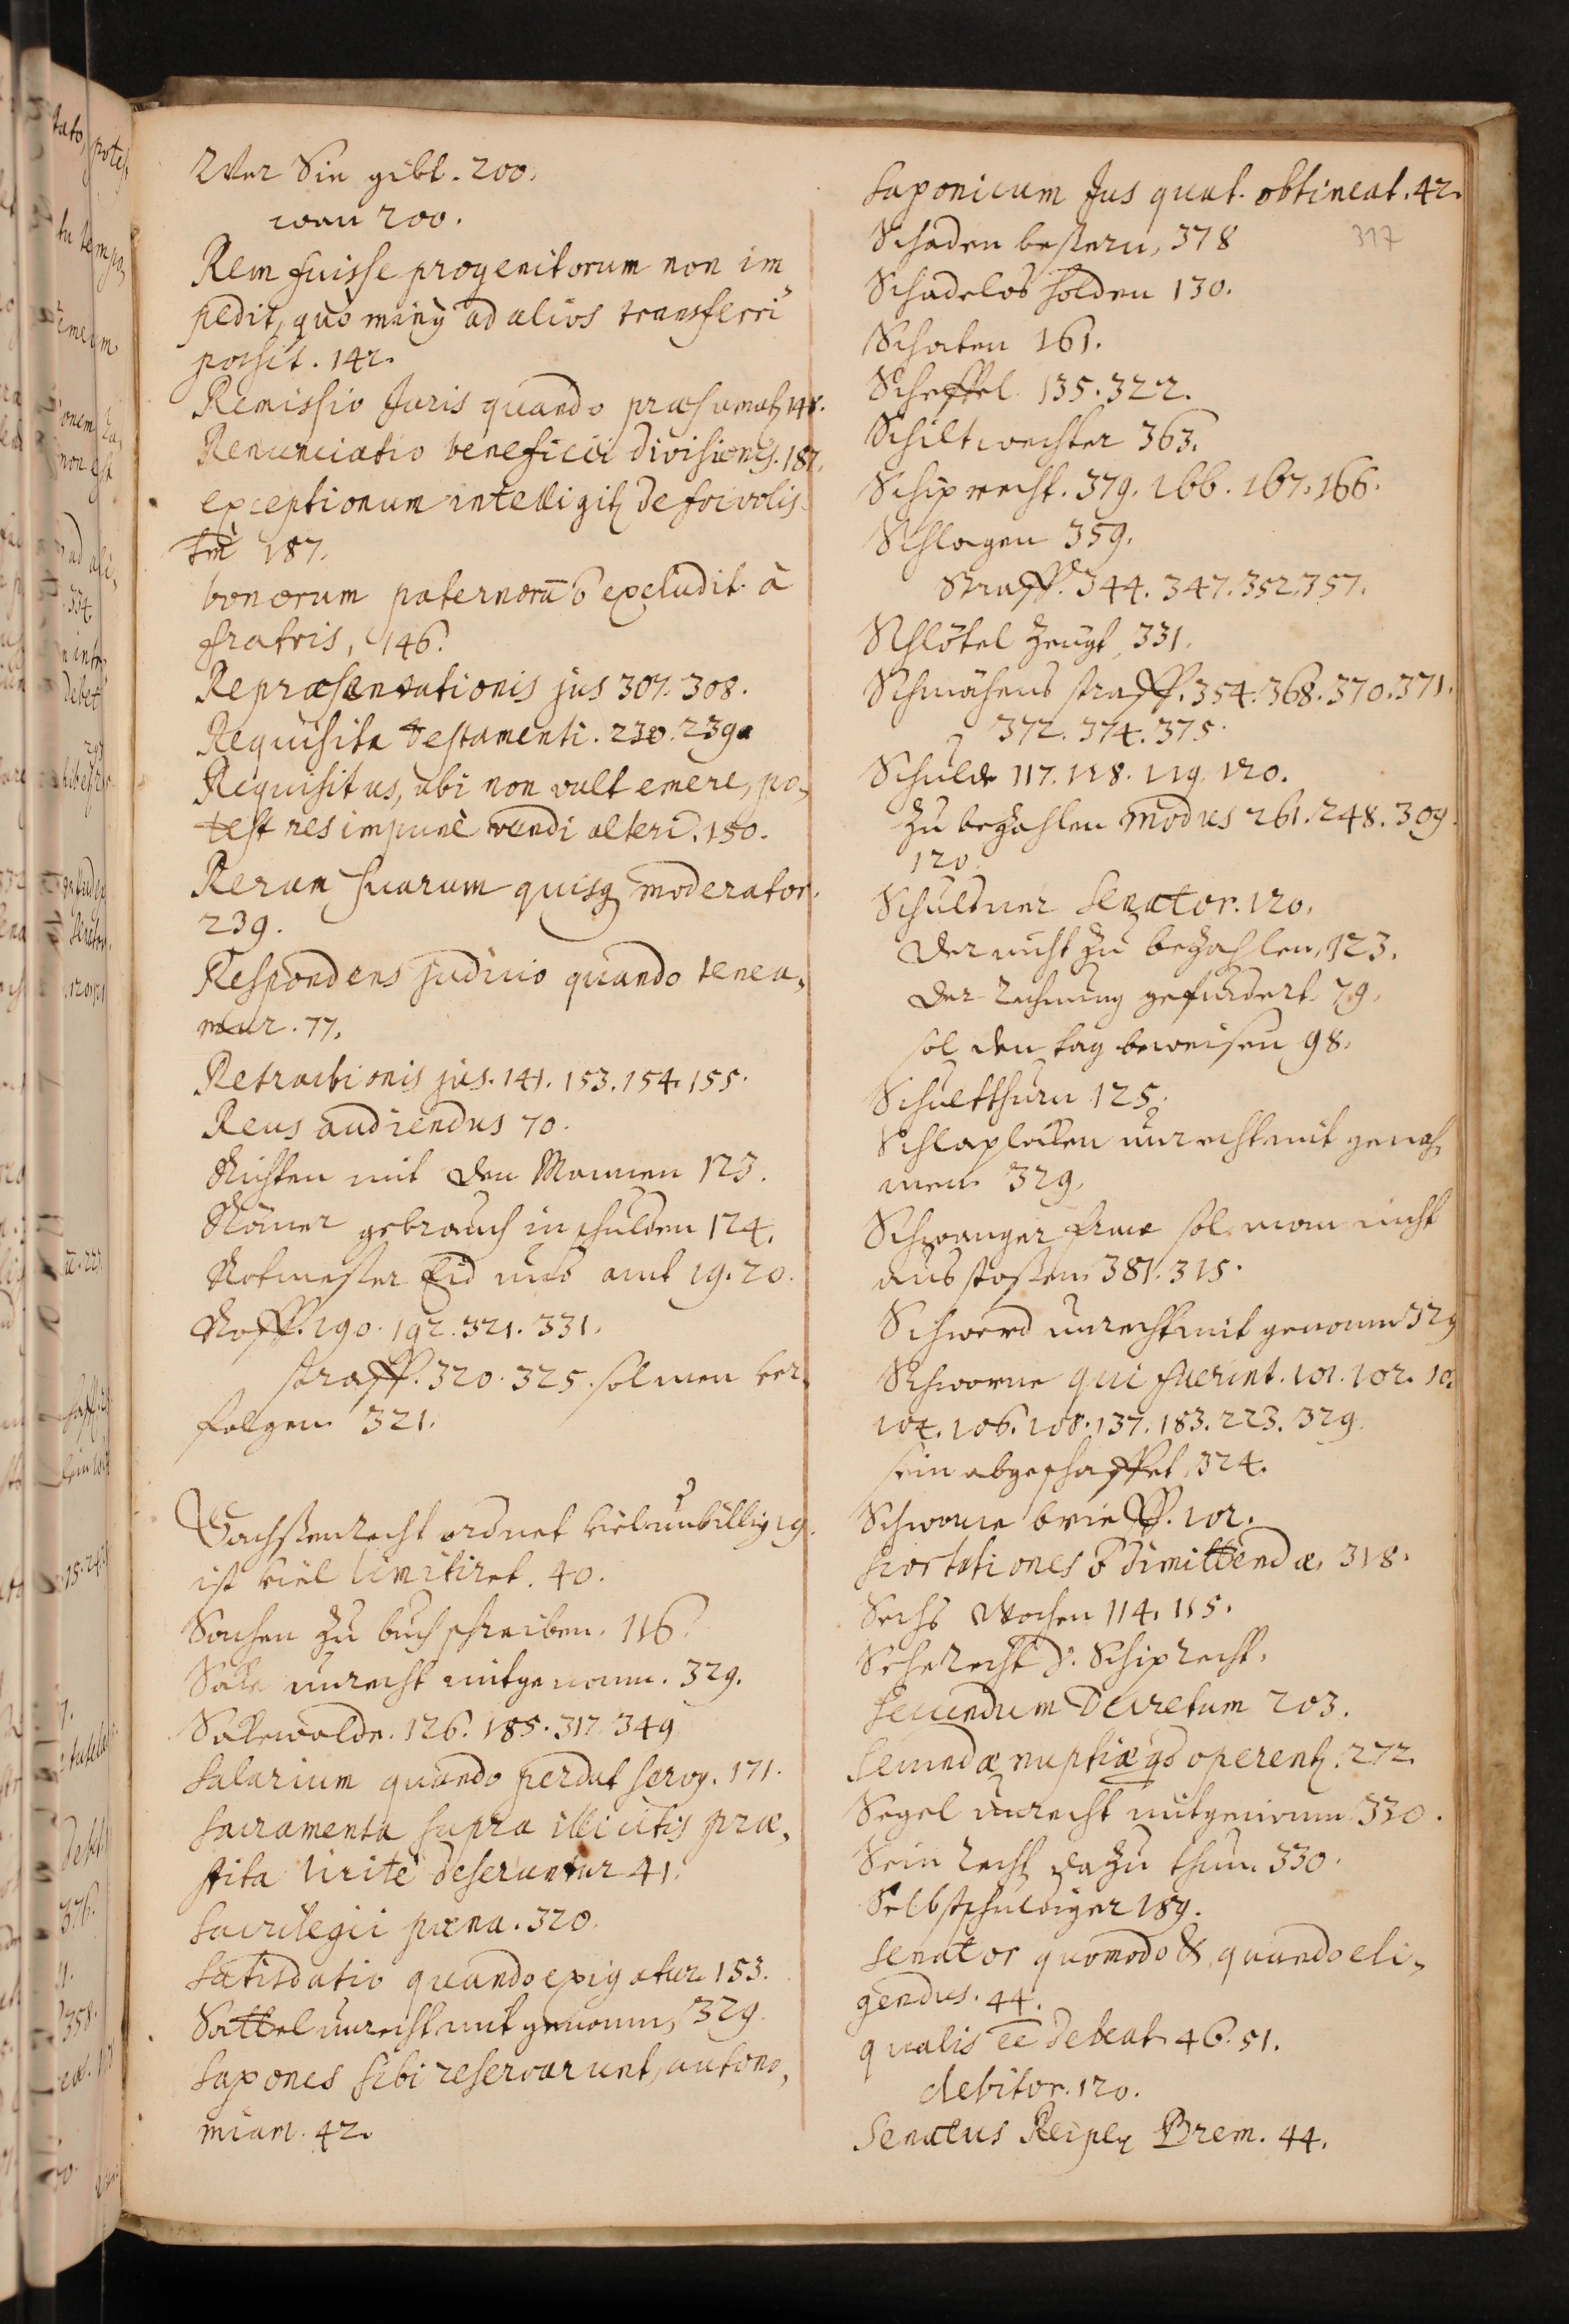 Wer Sie gibt. 200.
wan 200.
Rem fuisse progenitorum non im
pedit, quò minꝰ ad alios transferri
possit. 142.
Remissio Juris quando præsumatꝛ 148.
Renunciatio beneficii divisionis. 187.
exceptionum intelligitꝛ de frivolis
tm̄ 187.
bonorum paternorū õ excludit à
fratris, 146.
Repræsentationis jus 307. 308.
Requisita testamenti. 230. 239.
Requisitus, ubi non vult emere, po-
test res impunè vendi alteri. 150.
Rerum suarum quisqꝫ moderator.
239.
Respondens judicio quando tenea-
mur. 77.
Retractionis jus. 141. 153. 154. 155.
Reus audiendus 70.
Richten mit den Mannen 123.
Römer gebrauch in schulden 124.
Rotmester Eid und amt 19. 20.
Roff. 190. 192. 321. 331.
straff. 320. 325. sol men ver-
folgen 321.
Sachssenrecht ordnet viel unbillig 19.
ist viel limitiret. 40.
Sachen zu buch schreiben. 116.
Sale unrecht mitgenomm. 329.
Sakewolde. 126. 185. 317. 349
Salarium quando perdat servꝰ. 171.
Sacramenta supra illicitis præ-
stita licitè deseruntur 41.
Sacrilegii pœna. 320.
Satisdatio quando exigatur 153.
Sattel unrecht mit genomm, 329.
Saxones sibi reservarunt, autono-
miam. 42.
Saxonicum Jus quat. obtineat. 42.
317
Schaden bessern, 378
Schadelos holden 130.
Schaten 161.
Scheffel 135. 322.
Schiltwechter 363.
Schiprecht. 379. 166. 167. 166.
Schlagen 359.
Straff. 344. 347. 352. 357.
Schlötel zeugt, 331.
Schmähens straff. 354. 368. 370. 371.
372. 374. 375.
Schulde 117. 118. 119. 120.
zu bezahlen modus 261. 248. 309.
120.
Schuldner Senator. 120.
der nicht zu bezahlen, 123.
der rechnung gefurdert 79.
sol den tag beweisen 98.
Schultthurn 125.
Schlaplacken unrecht mit genoh
men 329.
Schwanger fraue sol man nicht
aus stossen 381. 315.
Schwerd unrecht mit genomm 329
Schworne qui fuerint. 101. 102. 10
104. 106. 108. 137. 183. 223. 329.
sein abgeschaffet, 324.
Schworne brieff. 102.
Scortationes õ dimittendæ, 318.
Sechs Wochen 114. 115.
Seherecht v. Schiprecht.
Secundum Decretum 203.
Secundæ nuptiæ qd operentꝛ. 272.
Segel unrecht mitgenomm 330.
Sein recht dazu thun 330.
Selbstschuldiger 189.
Senator quomodo & quando eli-
gendus. 44.
qualis ēē debeat 46. 51.
debitor. 120.
Senatus Reipꝫ Brem. 44.